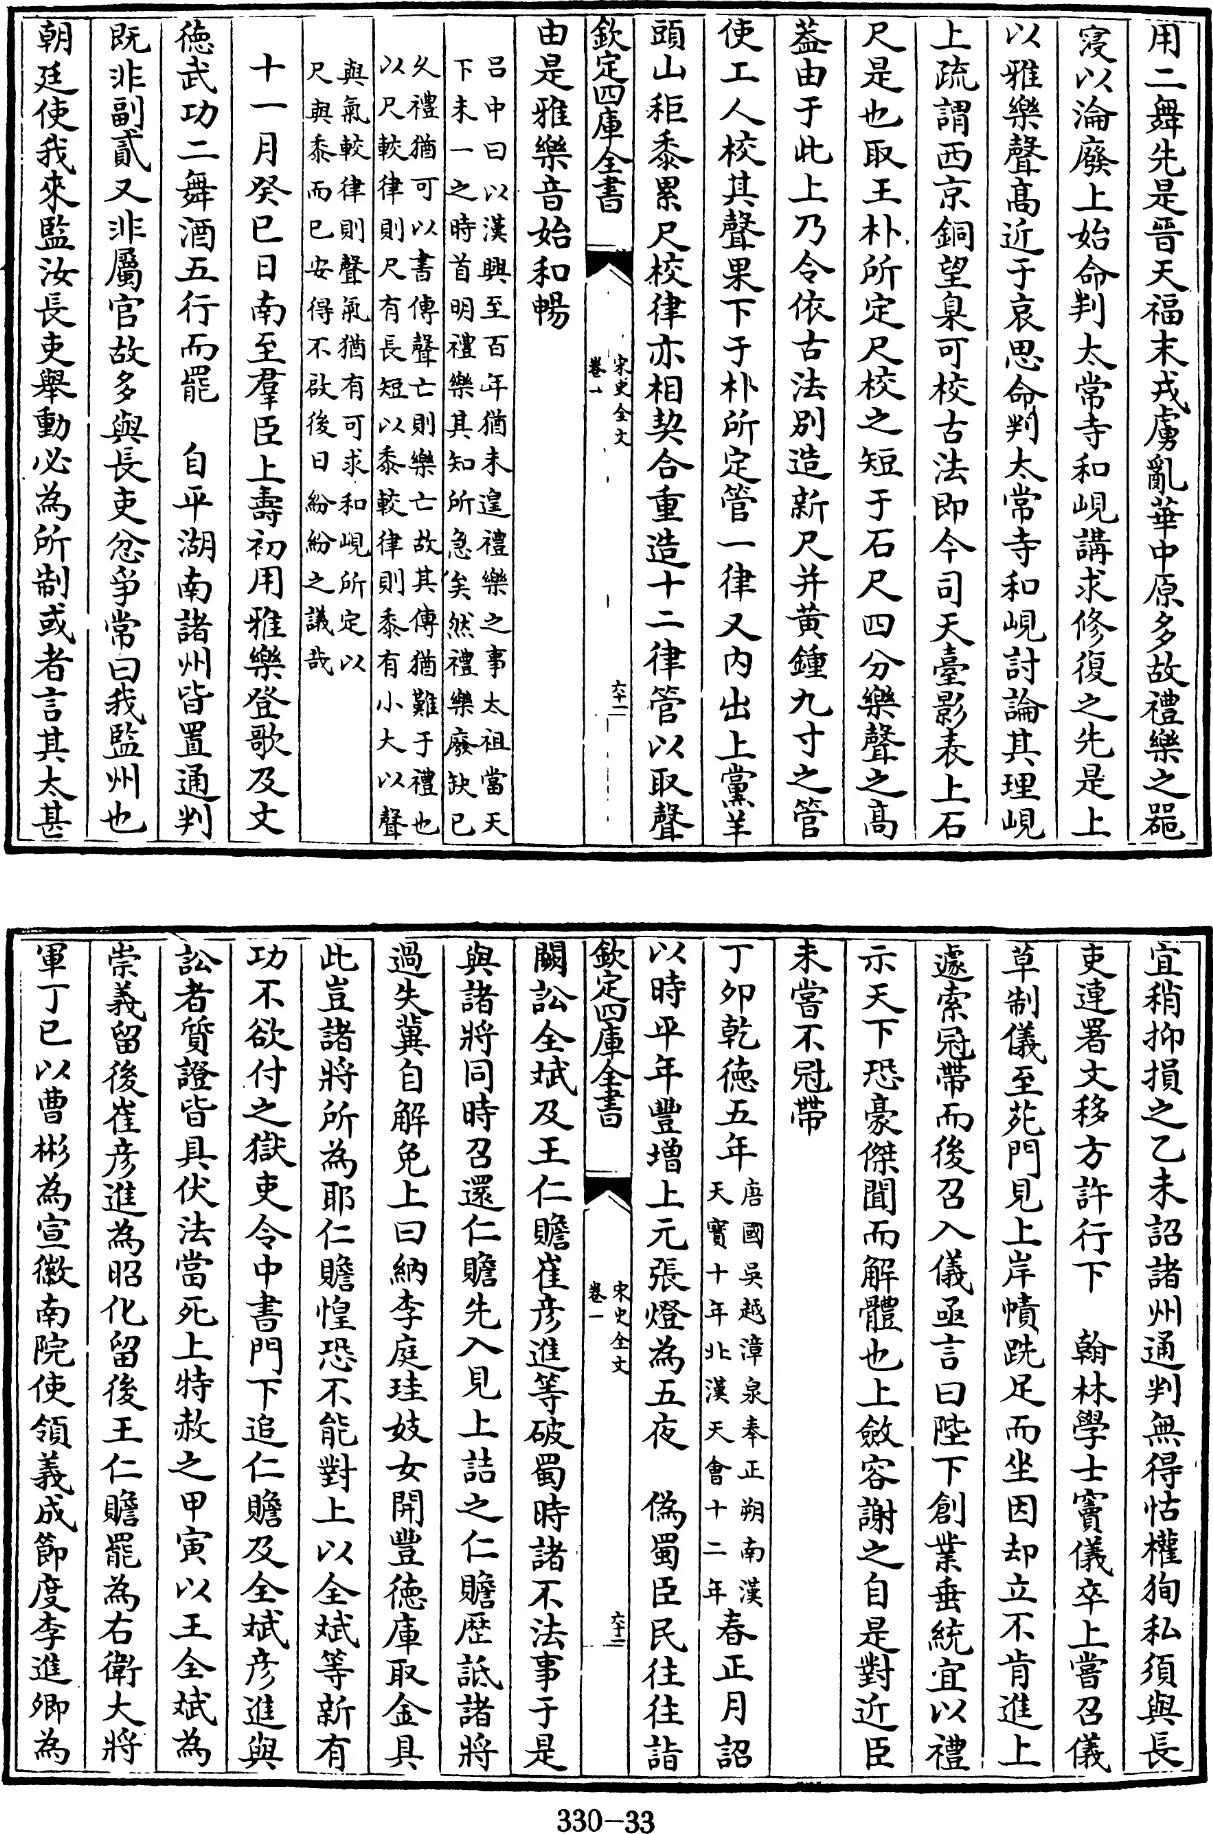 用二舞先是晉天福末戎虜亂華中原多故禮樂之器
寖以淪廢上始命判太常寺和峴講求修復之先是上
以雅樂聲髙近于哀思命判太常寺和峴討論其理峴
上疏謂西京銅望臬可校古法即今司天臺影表上石
尺是也取王朴所定尺校之短于石尺四分樂聲之髙
葢由于此上乃令依古法別造新尺并黄鍾九寸之管
使工人校其聲果下于朴所定管一律又内出上黨羊
頭山秬黍累尺校律亦相契合重造十二律管以取聲
欽定四庫全書
宋史全文
卷一
六十一
由是雅樂音始和暢
吕中曰以漢興至百年猶未遑禮樂之事太祖當天
下未一之時首明禮樂其知所急矣然禮樂廢缺已
乆禮猶可以書傳聲亡則樂亡故其傳猶難于禮也
以尺較律則尺有長短以黍較律則黍有小大以聲
與氣較律則聲氣猶有可求和峴所定以
尺與黍而已安得不啟後日紛紛之議哉
十一月癸巳日南至羣臣上壽初用雅樂登歌及文
德武功二舞酒五行而罷　自平湖南諸州皆置通判
既非副貳又非屬官故多與長吏忿爭常曰我監州也
朝廷使我來監汝長吏舉動必為所制或者言其太甚
宜稍抑損之乙未詔諸州通判無得怙權狥私須與長
吏連署文移方許行下　翰林學士竇儀卒上嘗召儀
草制儀至苑門見上岸幘跣足而坐因却立不肯進上
遽索冠帶而後召入儀亟言曰陛下創業垂統宜以禮
示天下恐豪傑聞而解體也上斂容謝之自是對近臣
未嘗不冠帶
丁卯乾德五年唐國吳越漳泉奉正朔南漢天寳十年北漢天會十二年春正月詔
以時平年豐增上元張燈為五夜　偽蜀臣民往往詣
欽定四庫全書
宋史全文
卷一
六十二
闕訟全斌及王仁贍崔彦進等破蜀時諸不法事于是
與諸將同時召還仁贍先入見上詰之仁贍歴詆諸將
過失冀自解免上曰納李庭珪妓女開豐德庫取金具
此豈諸將所為耶仁贍惶恐不能對上以全斌等新有
功不欲付之獄吏令中書門下追仁贍及全斌彦進與
訟者質證皆具伏法當死上特赦之甲寅以王全斌為
崇義留後崔彦進為昭化留後王仁贍罷為右衛大將
軍丁巳以曹彬為宣徽南院使領義成節度李進卿為
330-33